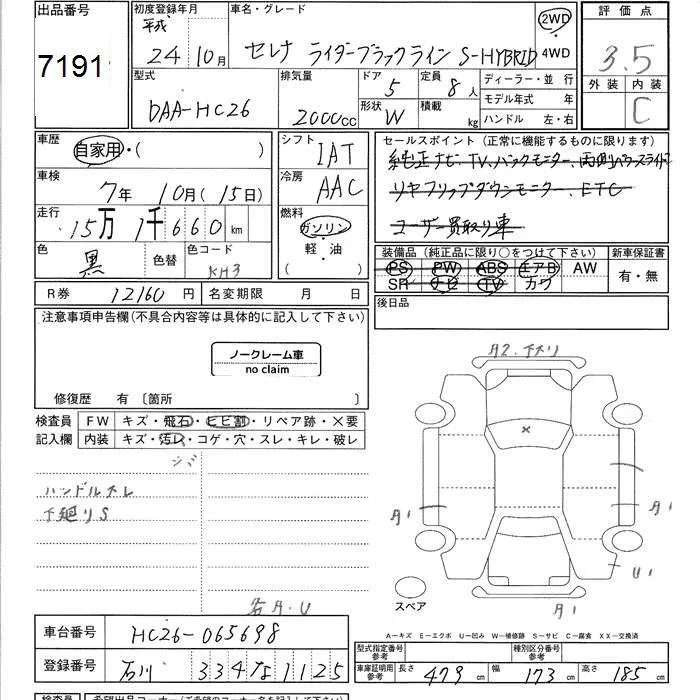 出品番号
7191
初度登録年月
平成
24 10月
車名・グレード
セレナ ライダーブラックライン S-HYBRID
2WD
4WD
評価点
3.5
外装 内装
C
型式
DAA-HC26
排気量
2000cc
ドア
5
定員
8人
形状
W
積載
kg
ディーラー・並行
モデル年式 年
ハンドル 左・右
車歴
自家用・( )
車検
7年 10月(15日)
走行
15万1千660km
色
黒
色替
色コード
KH3
シフト
IAT
冷房
AAC
燃料
ガソリン
・
軽・油
( )
セールスポイント(正常に機能するものに限ります)
純正ナビ、TV、バックモニター、両側パワースライド
リヤフリップダウンモニター、ETC
ユーザー買取り車
装備品(純正品に限り○をつけて下さい)
新車保証書
PS PW ABS エアB AW
SR ナビ TV カワ
有・無
R券 12160円
名変期限 月 日
後日品
注意事項申告欄(不具合内容等は具体的に記入して下さい)
ノークレーム車
no claim
修復歴 有〔箇所 〕
検査員
記入欄
FW キズ・飛石・ヒビ割・リペア跡・×要
内装 キズ・汚レ・コゲ・穴・スレ・キレ・破レ
シミ
ハンドルスレ
下廻りS
各A.U
A2.下スリ
×
A1
A1
U1
A1
スペア
A−キズ E−エクボ U−凹み W−補修跡 S−サビ C−腐食 XX−交換済
車台番号
HC26-065698
登録番号
石川 334 な 1125
型式指定番号
参考
種別区分番号
参考
車庫証明用
参考
長さ 479cm
幅 173cm
高さ 185cm
検査員
希望出品コーナー(ご希望のコーナー名を